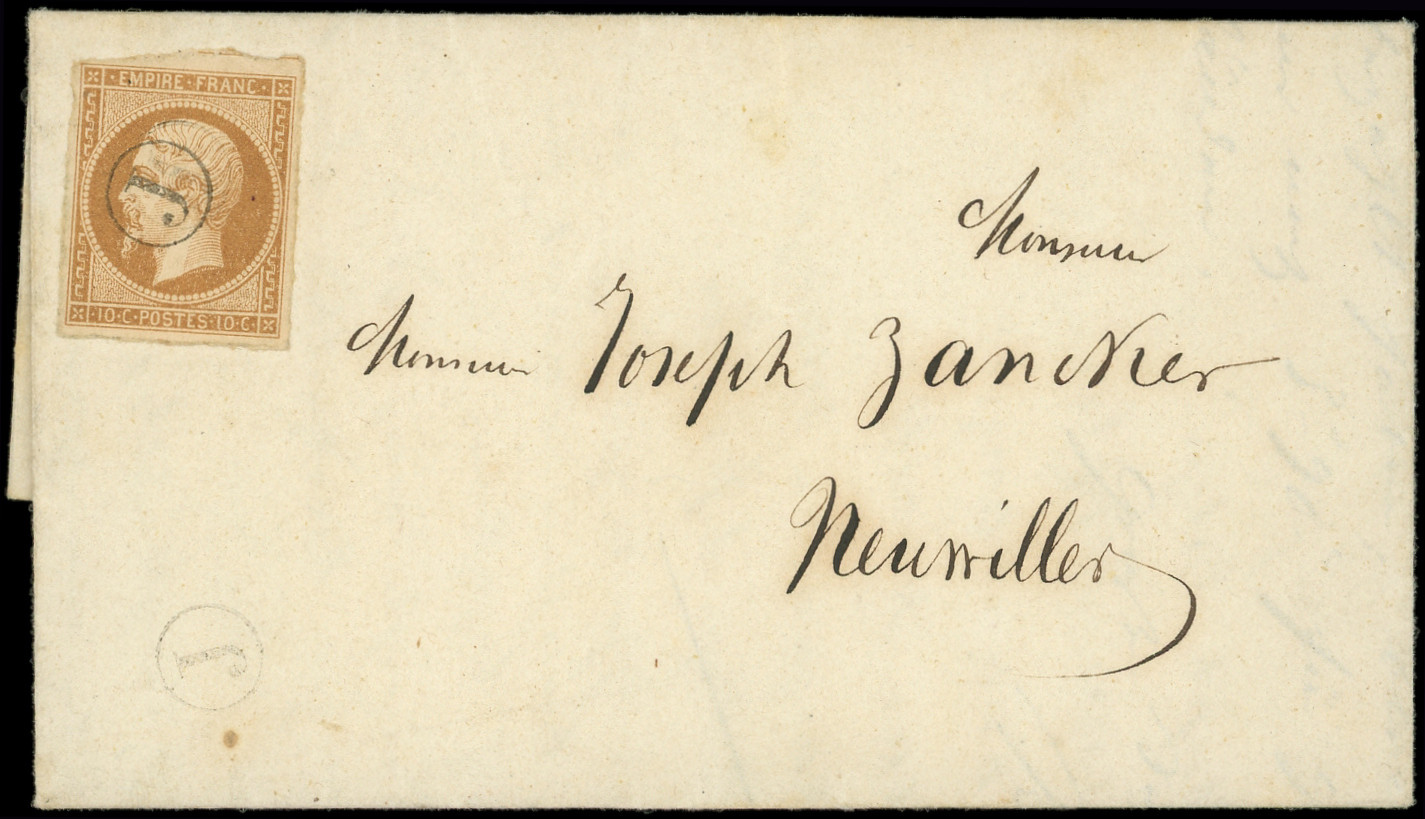 ·EMPIRE·FRANC·
J
·10·C·POSTES·10·C·
Monsieur
Monsieur Joseph Zancker
Neuwiller
J